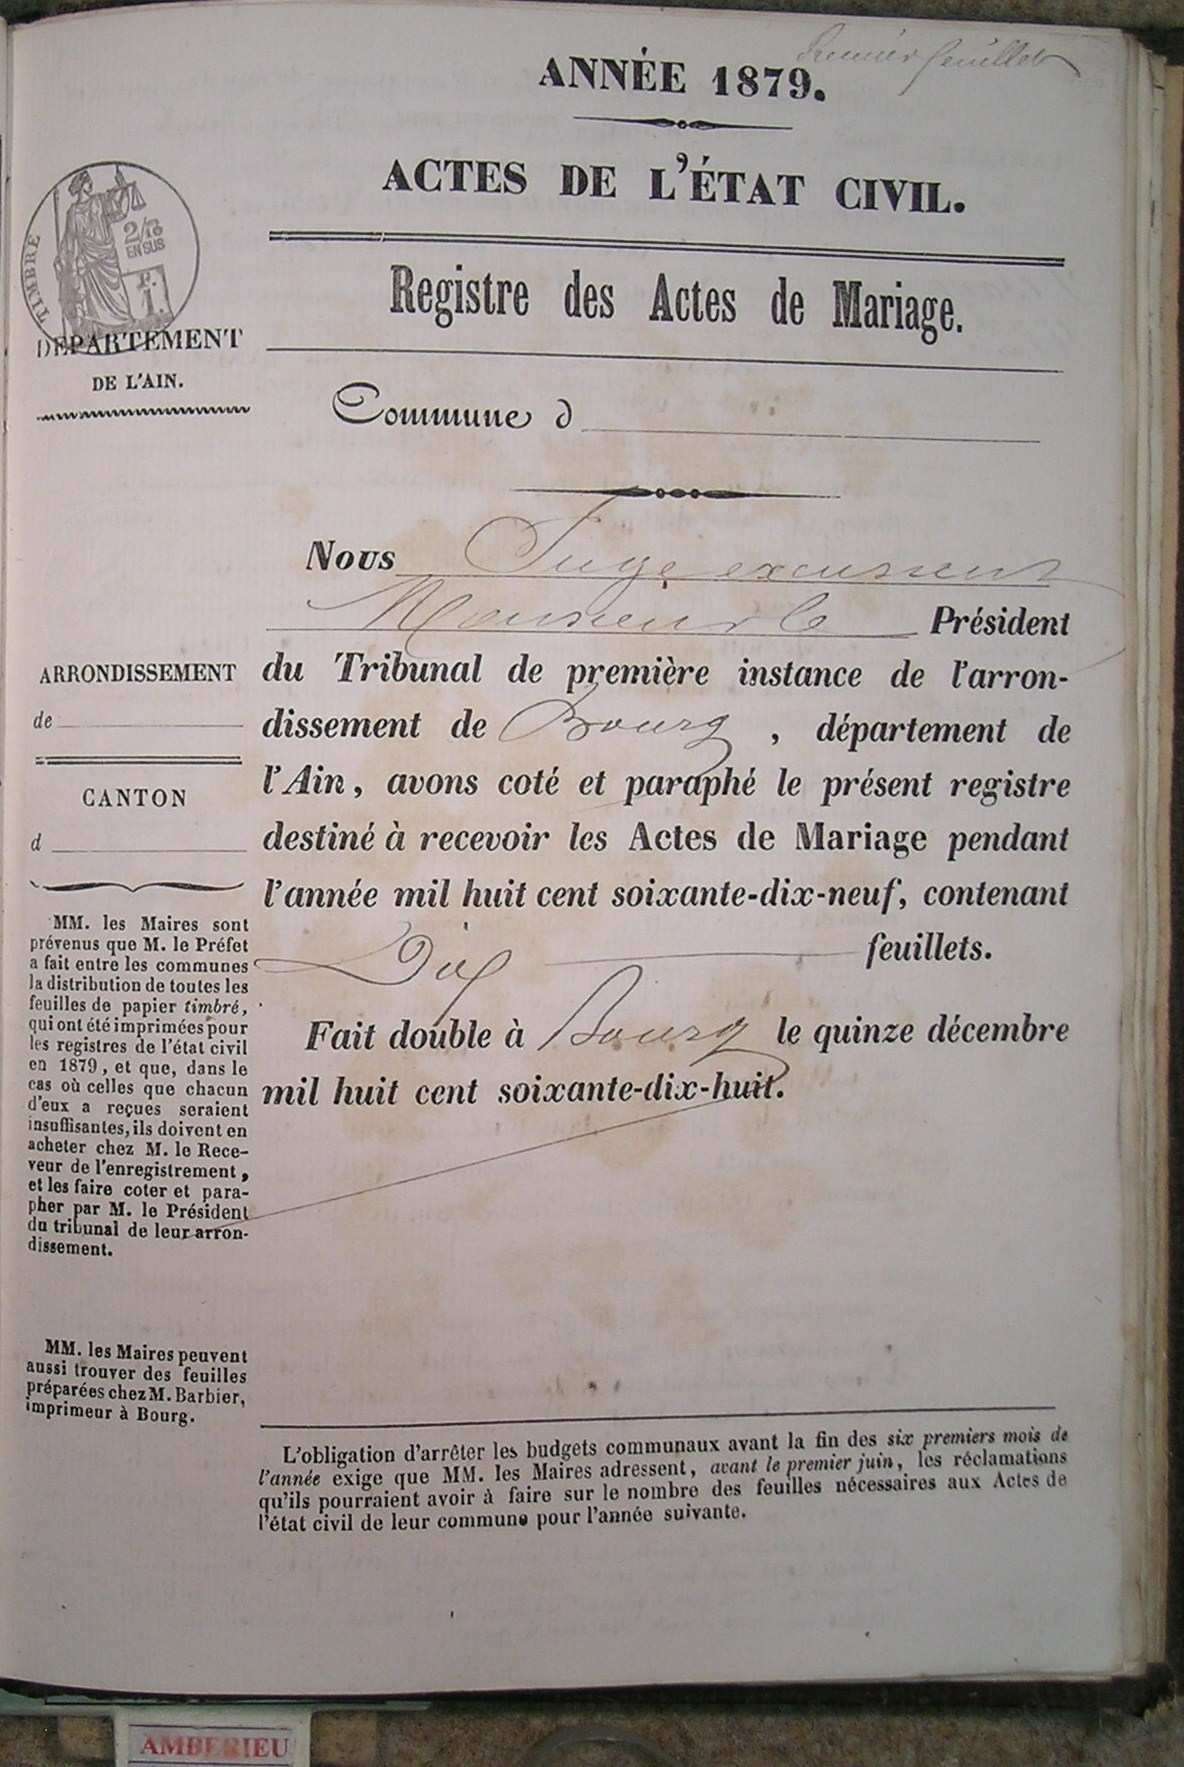 Premier feuillet
ANNÉE 1879.
ACTES DE L'ÉTAT CIVIL.
Registre des Actes de Mariage.
TIMBRE
2/10
EN SUS
DÉPARTEMENT
DE L'AIN.
Commune d
Nous Juge excusant
Monsieur le Président
du Tribunal de première instance de l'arron-
dissement de Bourg, département de
l'Ain, avons coté et paraphé le présent registre
destiné à recevoir les Actes de Mariage pendant
l'année mil huit cent soixante-dix-neuf, contenant
Dix feuillets.
Fait double à Bourg le quinze décembre
mil huit cent soixante-dix-huit.
ARRONDISSEMENT
de
CANTON
d
MM. les Maires sont
prévenus que M. le Préfet
a fait entre les communes
la distribution de toutes les
feuilles de papier timbré,
qui ont été imprimées pour
les registres de l'état civil
en 1879, et que, dans le
cas où celles que chacun
d'eux a reçues seraient
insuffisantes, ils doivent en
acheter chez M. le Rece-
veur de l'enregistrement,
et les faire coter et para-
pher par M. le Président
du tribunal de leur arron-
dissement.
MM. les Maires peuvent
aussi trouver des feuilles
préparées chez M. Barbier,
imprimeur à Bourg.
L'obligation d'arrêter les budgets communaux avant la fin des six premiers mois de
l'année exige que MM. les Maires adressent, avant le premier juin, les réclamations
qu'ils pourraient avoir à faire sur le nombre des feuilles nécessaires aux Actes de
l'état civil de leur commune pour l'année suivante.
AMBERIEU